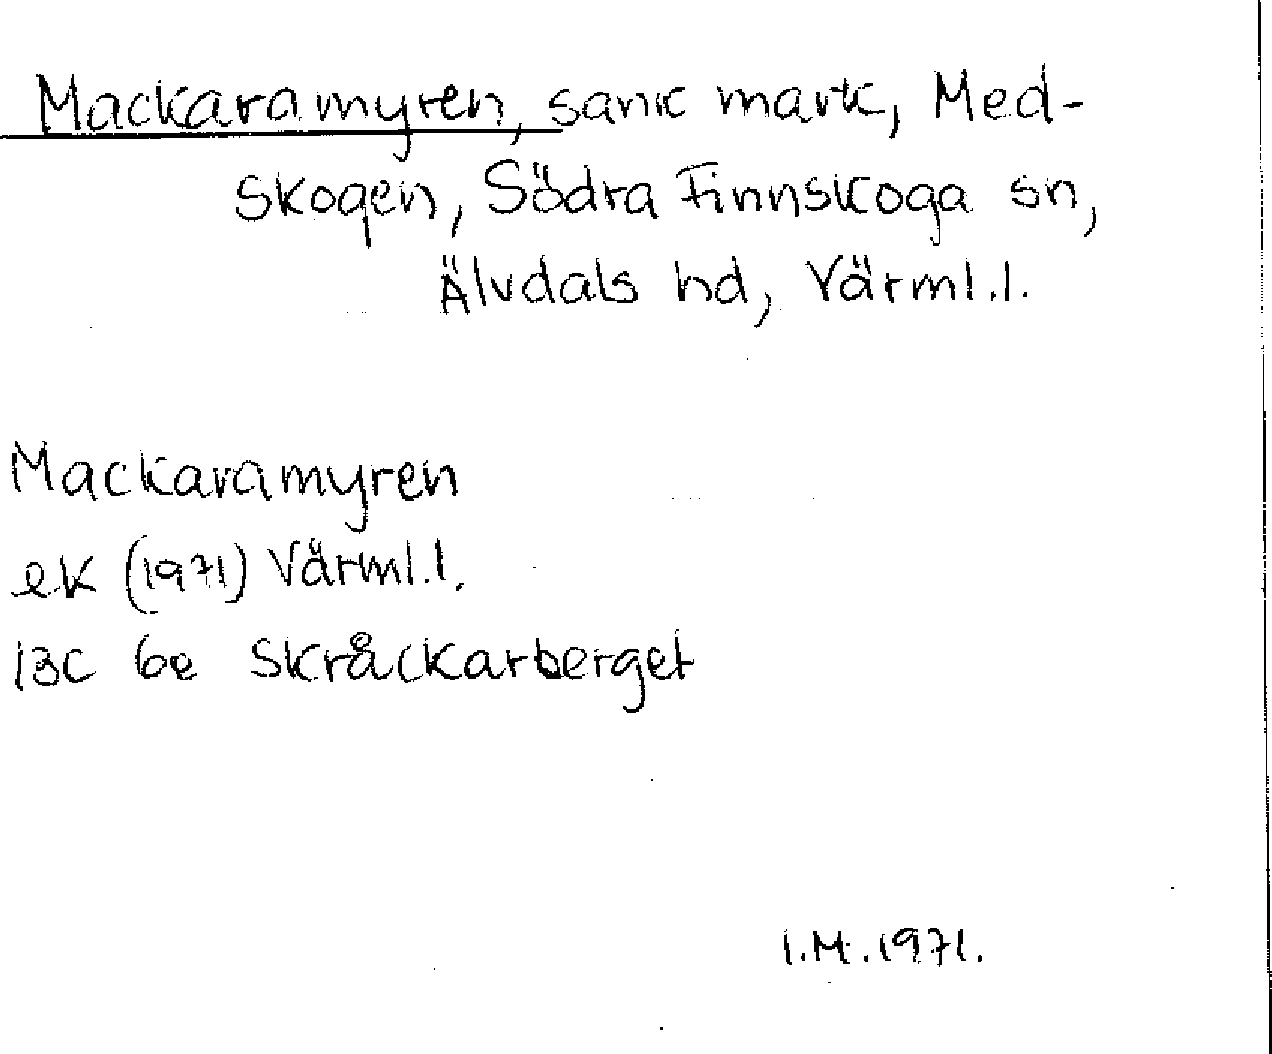 Mackaramyren, sank mark, Med-
skogen, Södra Finnskoga sn,
Älvdals hd, Värml.l.
Mackaramyren
ek (1971) Värml.l.
13C 6e Skråckarberget
I.M. 1971.